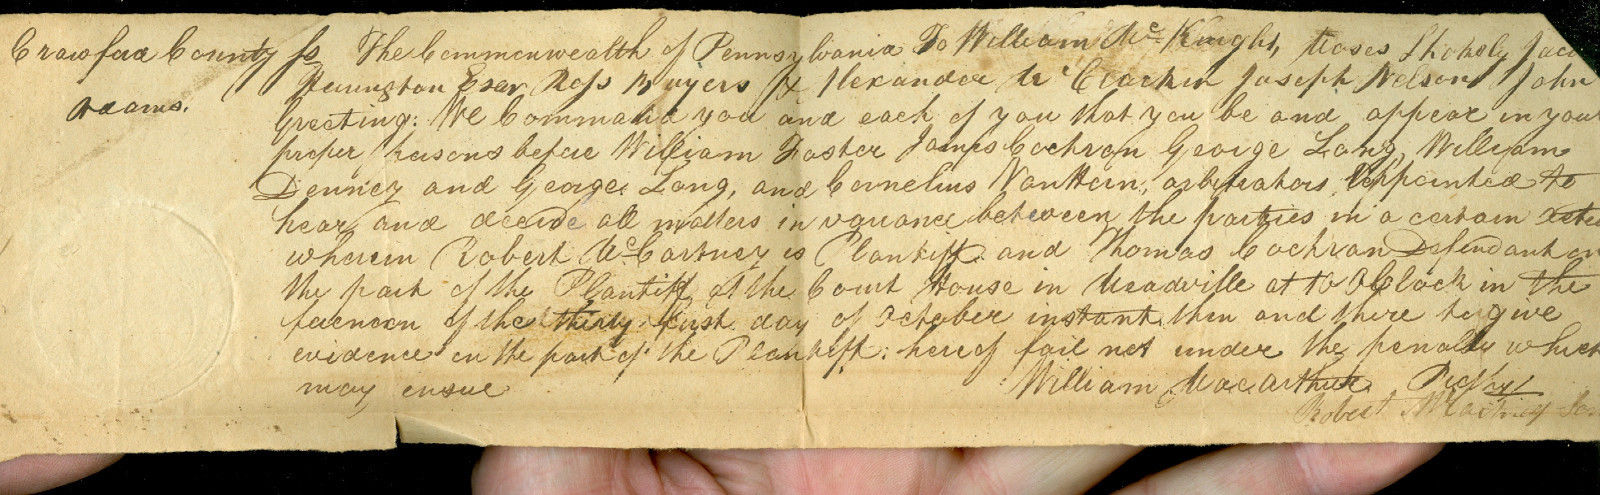 Crawford County ss The Commonwealth of Pennsylvania To William Mc Knight, Moses Shohsly
Adams. Herrington Esqr Ross Buyers & Alexander Mc Crackin Joseph Nelson John
Greeting: We Command you and each of you that you be and appear in your
proper persons before William Foster James Cochran George Long, William
Denney and George Long, and Cornelius VanHorn, arbitrators Appointed to
hear and decide all matters in variance between the parties in a certain
wherein Robert Mc Cartney is Plantiff and Thomas Cochran Defendant on
the part of the Plantiff at the Court House in Meadville at 10 O Clock in the
forenoon of the thirty first day of October instant then and there to give
evidence on the part of the Plantiff: hereof fail not under the penalty which
may ensue William Macarthur Prothy
Robert